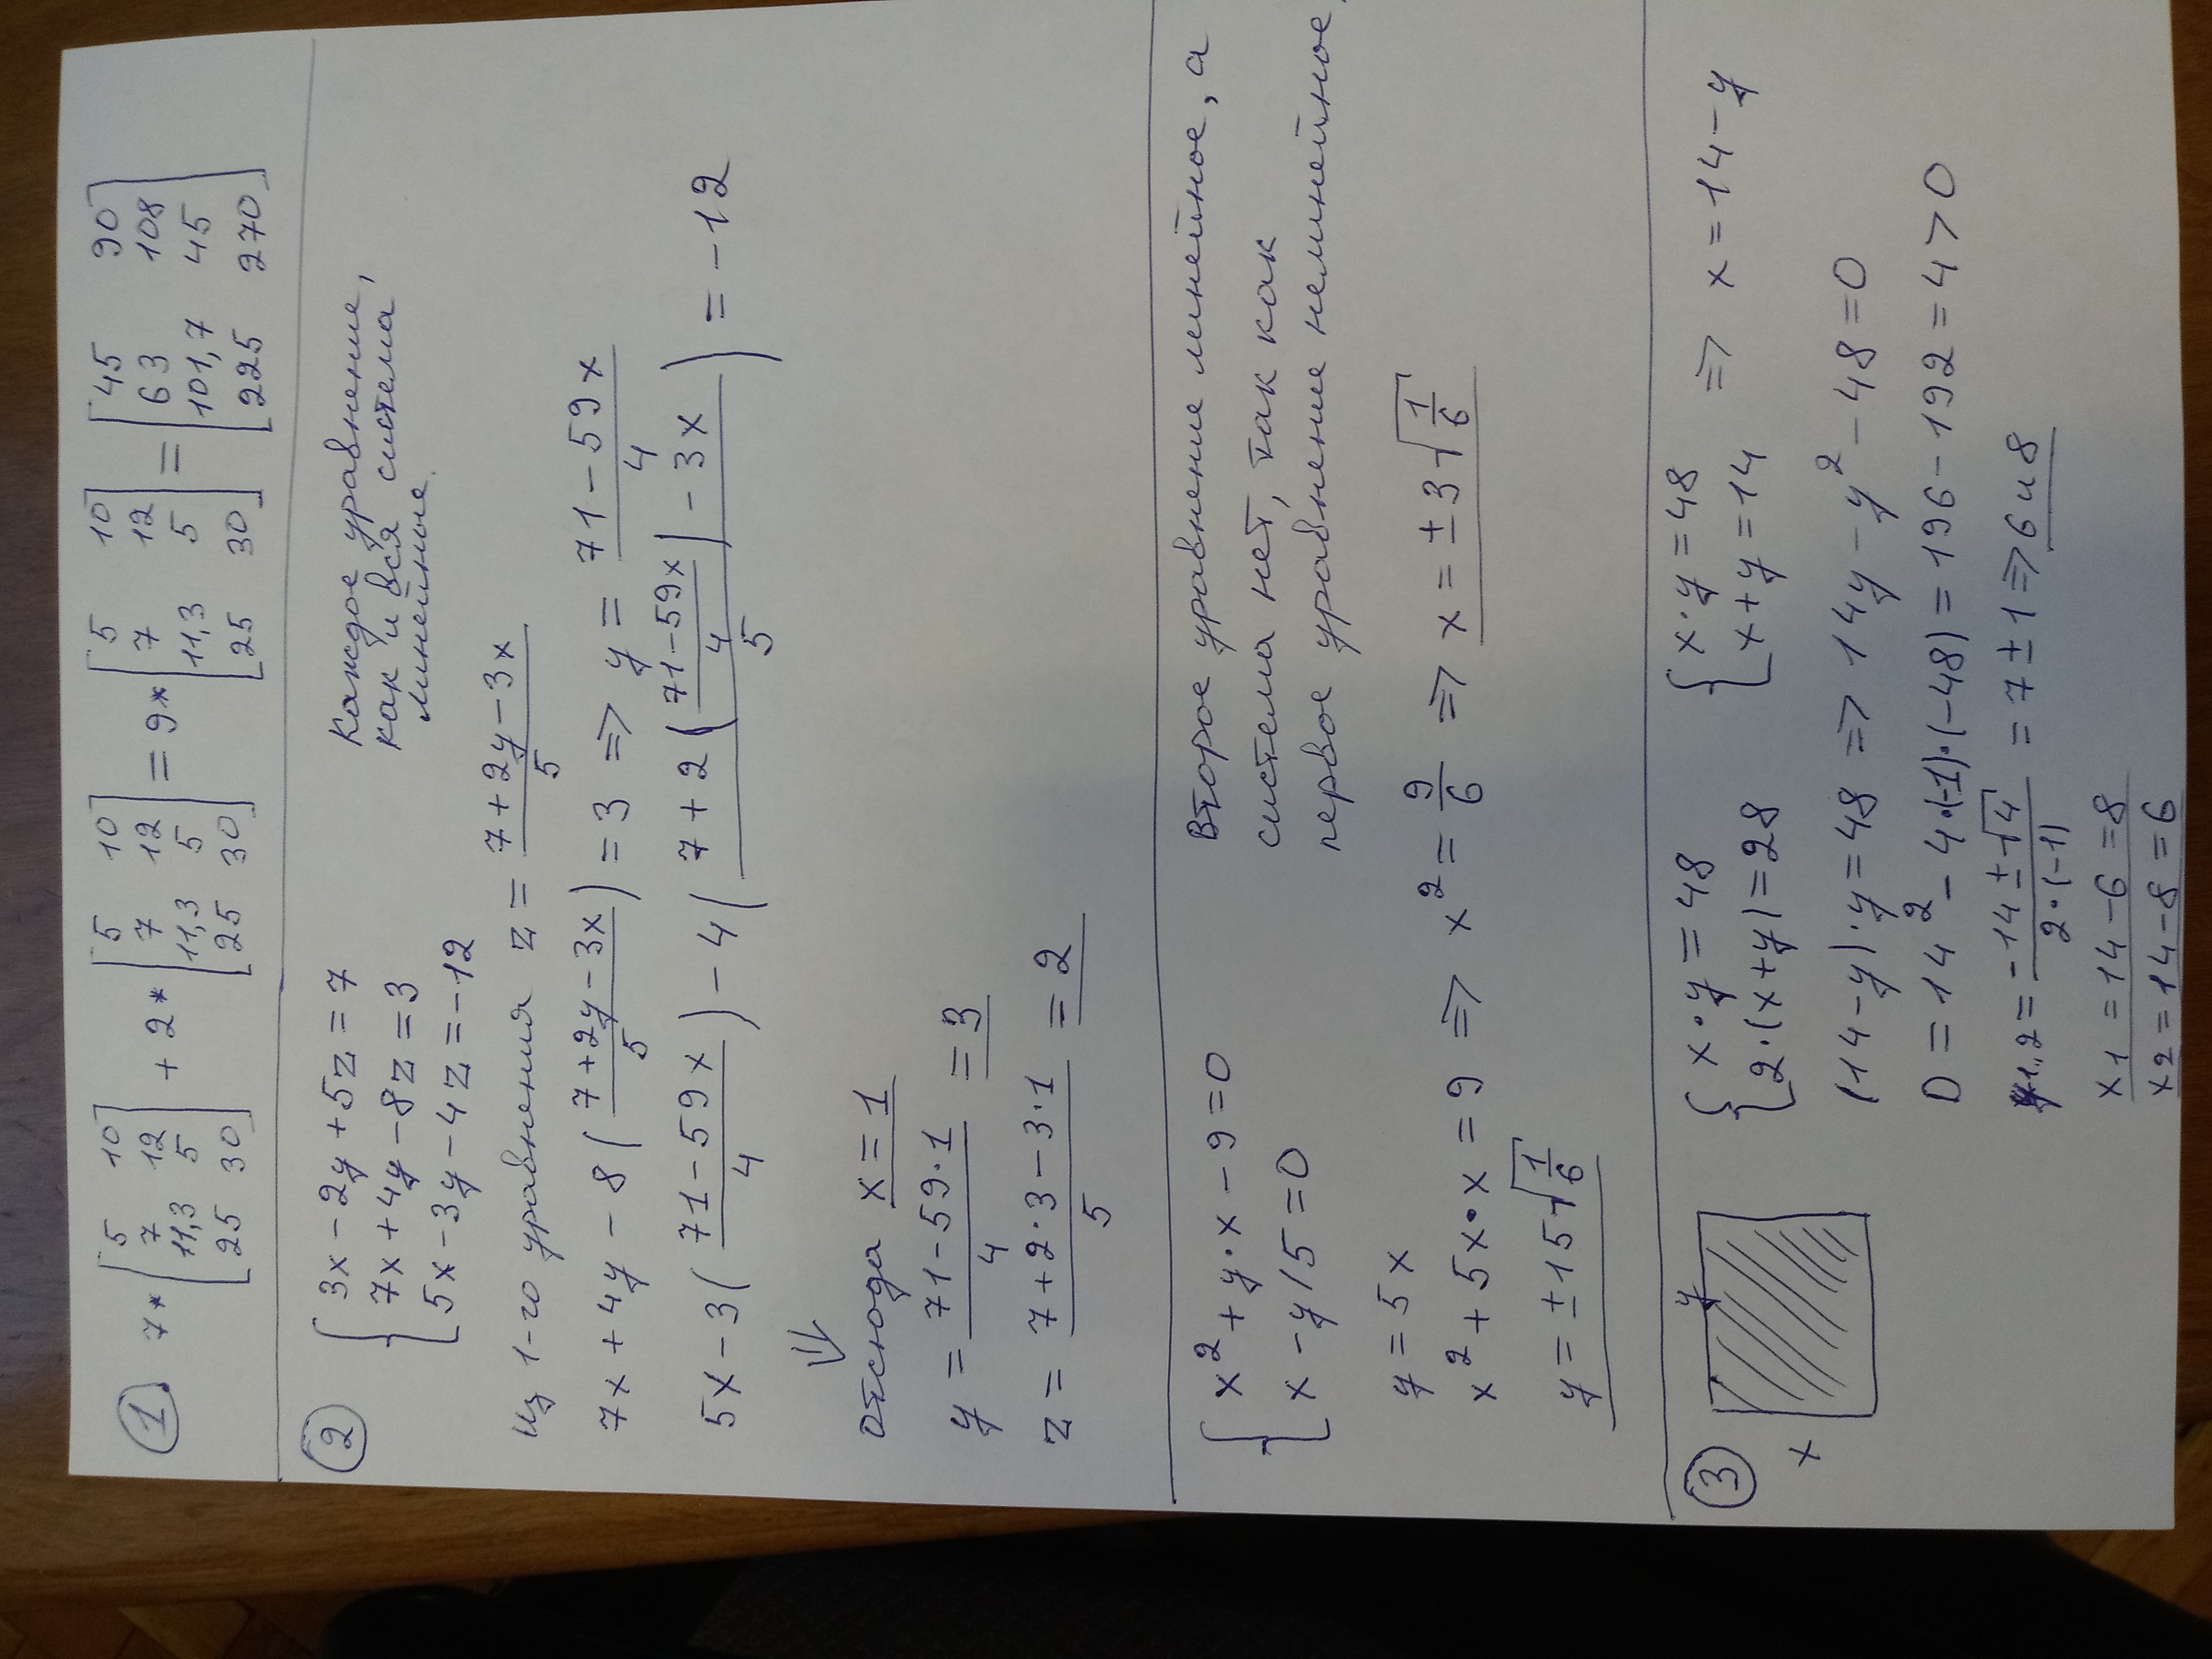 ① 7* [5 10; 7 12; 11,3 5; 25 30] + 2* [5 10; 7 12; 11,3 5; 25 30] = 9* [5 10; 7 12; 11,3 5; 25 30] = [45 90; 63 108; 101,7 45; 225 270]
② { 3x - 2y + 5z = 7
7x + 4y - 8z = 3
5x - 3y - 4z = -12
Каждое уравнение,
как и вся система
линейные.
Из 1-го уравнения z = (7 + 2y - 3x)/5
7x + 4y - 8((7 + 2y - 3x)/5) = 3 => y = (71 - 59x)/4
5x - 3((71 - 59x)/4) - 4((7 + 2((71 - 59x)/4) - 3x)/5) = -12
⇓
Отсюда x = 1
y = (71 - 59·1)/4 = 3
z = (7 + 2·3 - 3·1)/5 = 2
{ x² + y·x - 9 = 0
x - y/5 = 0
Второе уравнение линейное, а
система нет, так как
первое уравнение нелинейное,
y = 5x
x² + 5x·x = 9 => x² = 9/6 => x = ±3√(1/6)
y = ±15√(1/6)
③ y
x
{ x·y = 48
2·(x+y) = 28
{ x·y = 48
x+y = 14 => x = 14 - y
(14 - y)·y = 48 => 14y - y² - 48 = 0
D = 14² - 4·(-1)·(-48) = 196 - 192 = 4 > 0
y1,2 = (-14 ± √4)/(2·(-1)) = 7 ± 1 => 6 и 8
x1 = 14 - 6 = 8
x2 = 14 - 8 = 6